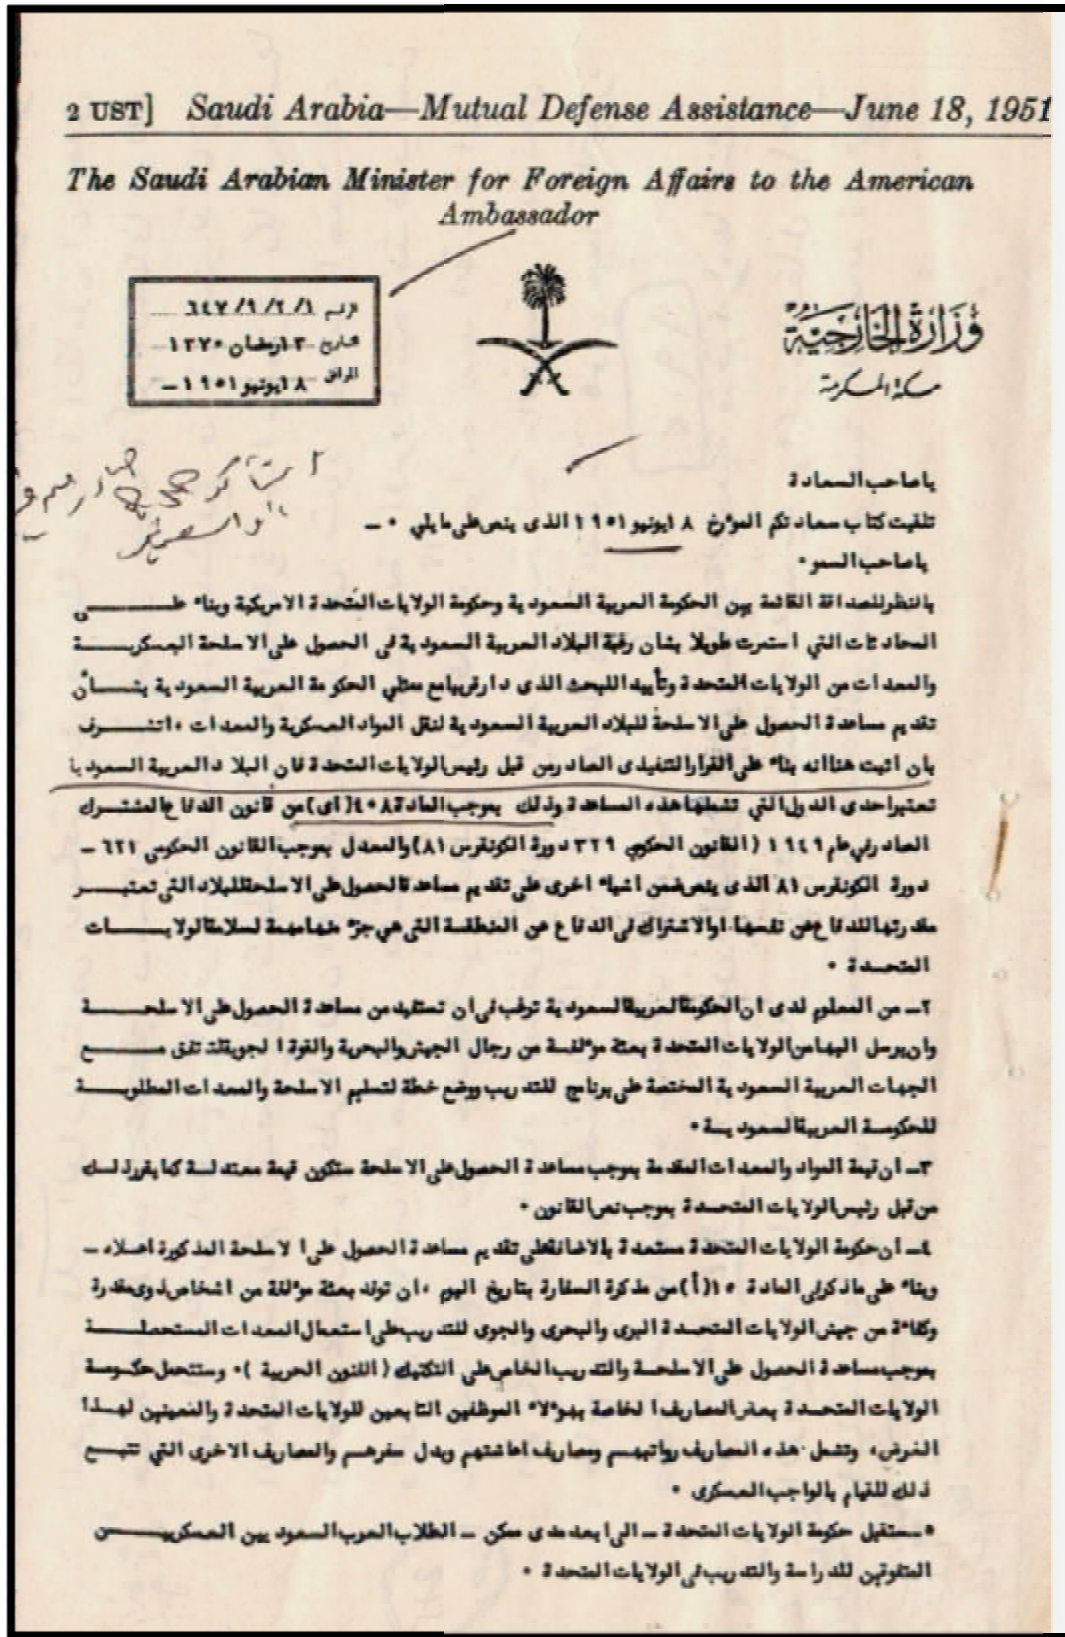 2 UST] Saudi Arabia—Mutual Defense Assistance—June 18, 1951
The Saudi Arabian Minister for Foreign Affairs to the American
Ambassador
وزارة الخارجية
مكة المكرمة
الرقم ٦٤٧/٩/٢/١
تاريخ ١٣ رمضان ١٣٧٠
الموافق ١٨ يونيو ١٩٥١ –
يا صاحب السعادة
تلقيت كتاب سعادتكم المؤرخ ١٨ يونيو ١٩٥١ الذى ينص على ما يلي ٠ –
يا صاحب السمو ٠
بالنظر للصداقة القائمة بين الحكومة العربية السعودية وحكومة الولايات المتحدة الامريكية وبناء على
المحادثات التي استمرت طويلا بشان رغبة البلاد العربية السعودية فى الحصول على الاسلحة العسكرية
والمعدات من الولايات المتحدة وتأييد اللبحث الذى دار قريبا مع ممثلي الحكومة العربية السعودية بشأن
تقديم مساعدة الحصول على الاسلحة للبلاد العربية السعودية لنقل المواد العسكرية والمعدات ، اتشرف
بان اثبت هنا انه بناء على القرار التنفيذى الصادر من قبل رئيس الولايات المتحدة فان البلاد العربية السعوديا
تعتبر احدى الدول التي تشملها هذه المساعدة وذلك بموجب المادة ٤٠٨ (اى) من قانون الدفاع المشترك
الصادر في عام ١٩٤٩ (القانون الحكومي ٣٢٩ دورة الكونقرس ٨١) والمعدل بموجب القانون الحكومى ٦٢١ –
دورة الكونقرس ٨١ الذى ينص ضمن اشياء اخرى على تقديم مساعدة الحصول على الاسلحة للبلاد التى تعتبر
مقدرتها للدفاع عن نفسها او الاشتراك فى الدفاع عن المنطقة التى هي جزء منها مهمة لسلامة الولايات
المتحدة ٠
٢– من المعلوم لدى ان الحكومة العربية السعودية ترغب فى ان تستفيد من مساعدة الحصول على الاسلحة
وان يرسل اليها من الولايات المتحدة بعثة مؤلفة من رجال الجيش والبحرية والقوة الجوية لتتفق مع
الجهات العربية السعودية المختصة على برنامج للتدريب ووضع خطة لتسليم الاسلحة والمعدات المطلوبة
للحكومة العربية السعودية ٠
٣– ان قيمة المواد والمعدات المقدمة بموجب مساعدة الحصول على الاسلحة ستكون قيمة معتدلة كما يقرر ذلك
من قبل رئيس الولايات المتحدة بموجب نص القانون ٠
٤– ان حكومة الولايات المتحدة مستعدة بالاضافة على تقديم مساعدة الحصول على الاسلحة المذكورة اعلاه –
وبناء على ما ذكر فى المادة ١٥ (أ) من مذكرة السفارة بتاريخ اليوم ، ان توفد بعثة مؤلفة من اشخاص ذوى مقدرة
وكفاءة من جيش الولايات المتحدة البرى والبحرى والجوى للتدريب على استعمال المعدات المستحصلة
بموجب مساعدة الحصول على الاسلحة والتدريب الخاص على التكتيك (الفنون الحربية) ٠ وستتحمل حكومة
الولايات المتحدة بعض المصاريف الخاصة بهؤلاء الموظفين التابعين للولايات المتحدة والمعينين لهذا
الغرض ، وتشمل هذه المصاريف رواتبهم ومصاريف اعاشتهم وبدل سفرهم والمصاريف الاخرى التي تتبع
ذلك للقيام بالواجب العسكرى ٠
٥– ستقبل حكومة الولايات المتحدة – الى ابعد مدى ممكن – الطلاب العرب السعوديين العسكريين
المتفوقين للدراسة والتدريب فى الولايات المتحدة ٠